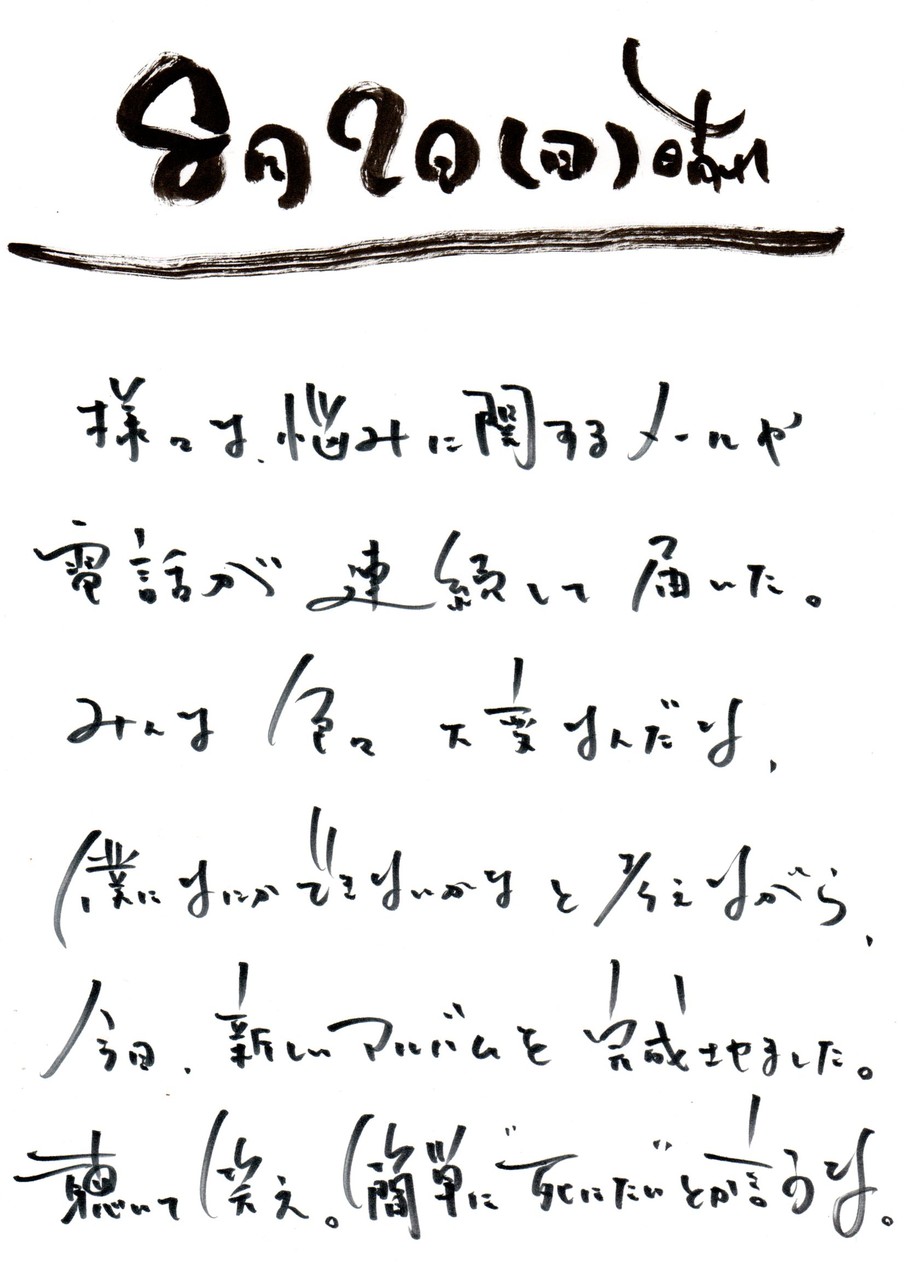 8月9日(日)晴れ
様々な、悩みに関するメールや
電話が連続して届いた。
みんな色々大変なんだな、
僕になにかできないかなと考えながら、
今日、新しいアルバムを完成させました。
聴いて笑え。簡単に"死にたい"とか言うな。